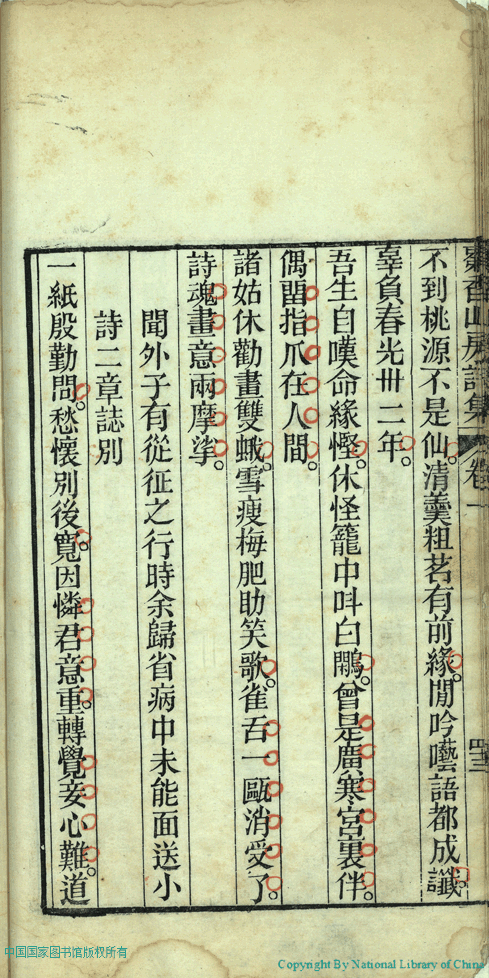 不到桃源不是仙。清羹粗茗有前緣。閒吟囈語都成讖。
辜負春光卅二年。
吾生自嘆命緣慳。休怪籠中呌白鷴。曾是廣寒宮裏伴。
偶畱指爪在人間。
諸姑休勸畫雙蛾。雪瘦梅肥助笑歌。雀舌一甌消受了。
詩魂畫意兩摩挲。
聞外子有從征之行時余歸省病中未能面送小
詩二章誌別
一紙殷勤問。愁懷別後寬。因憐君意重。轉覺妾心難。道
卷一
四三
中国国家图书馆版权所有
Copyright By National Library of China